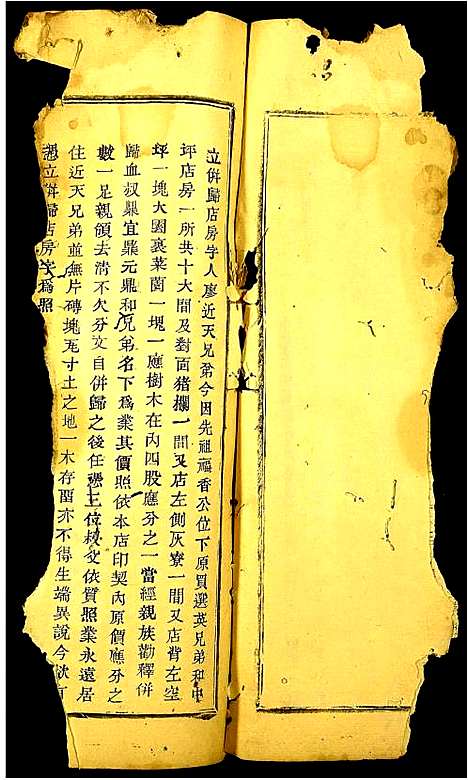 立併歸店房字人廖近天兄弟今因先祖福香公位下原買選英兄弟和中
坪店房一所共十大間及對面猪欄一間又店左側灰寮一間又店背左空
坪一塊大圂裏菜園一塊一應樹木在內四股應分之一當經親族勸釋併
歸血叔鼎宜鼎元鼎和兄弟名下為業其價照依本店印契內原價應分之
數一足親領去清不欠分文自併歸之後任憑三位叔父依質照業永遠居
住近天兄弟並無片磚塊瓦寸土之地一木存留亦不得生端異說今欲有
憑立併歸店房字為照